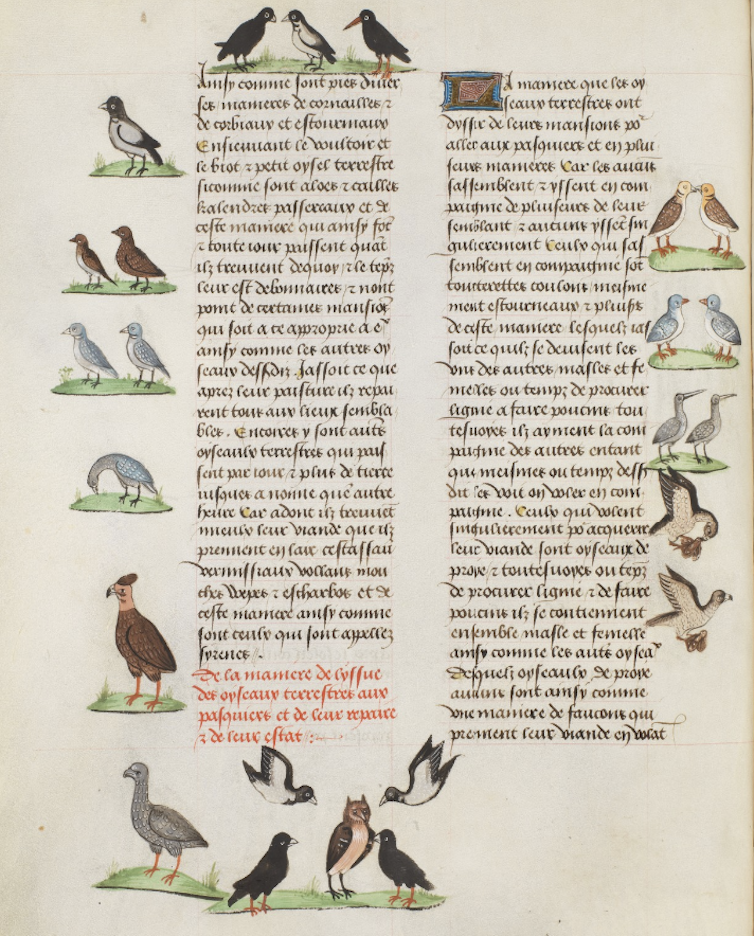 Ainsy comme sont pies diuer
ses manieres de cornailles ⁊
de corbiaux et estourniaux
Ensieuuant le voultoir et
le biot ⁊ petit oysel terrestre
sicomme sont aloes ⁊ cailles
kalendres passereaux et de
ceste maniere qui ainsy sõt
⁊ toute iour paissent quãt
ilz treuuent dequoy ⁊ le tẽpz
leur est debonnaires ⁊ nont
point de certaines mansiõs
qui soit a ce approprie a eˀ
ainsy comme les autres oy
seaux dessdiz. Jassoit ce que
aprez leur paisture ilz repai
rent tous aux lieux sembla
bles. Encores y sont autẽs
oyseaulx terrestres qui pais
sent par iour ⁊ plus de tierce
iusques a nonne que autre
heure Car adont ilz treuuẽt
mieulx leur viande que ilz
prennent en lair cestassau
vermissiaux vollans mou
ches wepes ⁊ escharbos et de
ceste maniere ainsy comme
sont ceulx qui sont appellez
syrenes.
De la maniere de lyssue
des oyseaux terrestres aux
pasquiers et de leur repaire
⁊ de leur estat :~
La maniere que les oy
seaux terrestres ont
dyssir de leurs mansions põ
aller aux pasquiers et en plui
seurs manieres Car les aucũs
sassemblent ⁊ yssent en com
paignie de pluiseurs de leur
semblant ⁊ aucuns yssẽt sin
gulierement Ceulx qui sas
semblent en compaignie sõt
tourterelles coulons meisme
ment estourneaux ⁊ pluiss
de ceste maniere lesquelz ias
soit ce quilz se deuisent les
vns des autres masles et fe
melles ou tempz de procurer
ligniẽ a faire poucins tou
tesuoyes ilz ayment la com
paignie des autres entant
qui meismes ou tempz dess
dit les voit on voler en com
paignie. Ceulx qui volent
singulierement põ acquerre
leur viande sont oyseaux de
proye ⁊ toutesuoyes ou tẽpz
de procurer lignie ⁊ de faire
poucins ilz se contiennent
ensemble masle et femelle
ainsy comme les autẽs oyseaˣ
desquelz oyseaulx de proye
aucuns sont ainsy comme
vne maniere de faucons qui
prennent leur viande en volãt